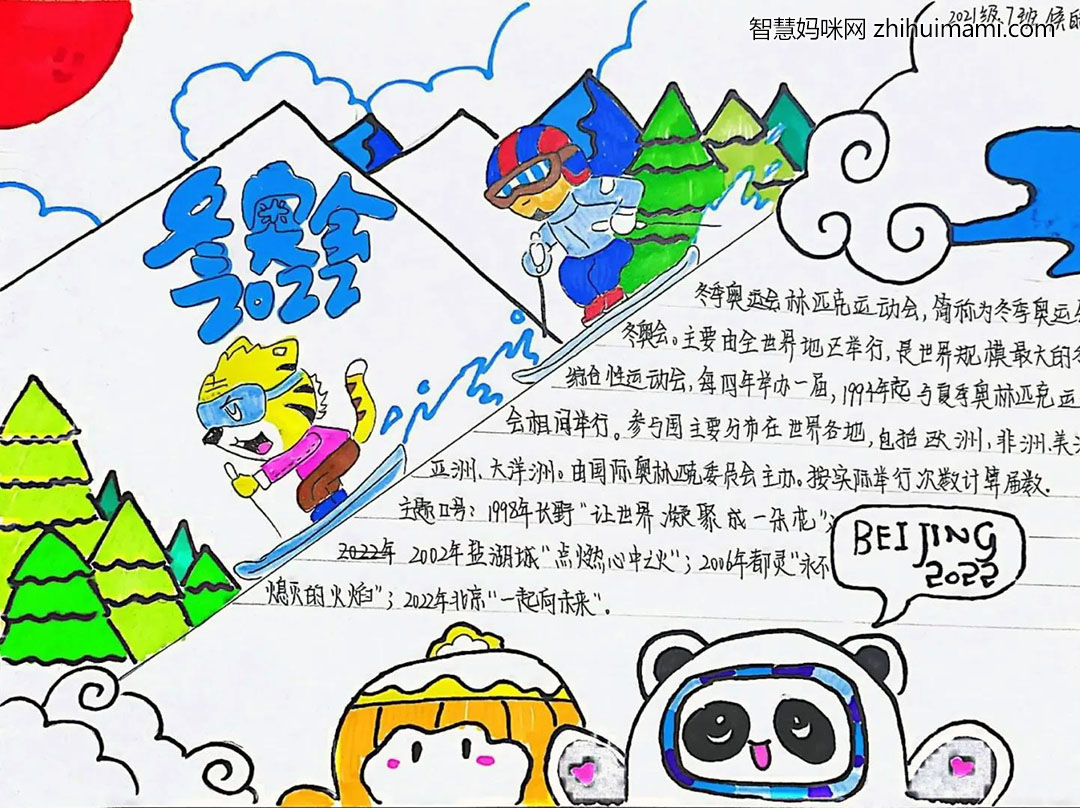 智慧妈咪网 zhihuimami.com
2021级.7班 侯
冬奥会
2022
冬季奥运会林匹克运动会，简称为冬季奥运
冬奥会。主要由全世界地区举行，是世界规模最大的冬
综合性运动会，每四年举办一届，1994年起与夏季奥林匹克运
会相间举行。参与国主要分布在世界各地，包括欧洲，非洲，美
亚洲、大洋洲。由国际奥林匹克委员会主办。按实际举行次数计算届数.
主题口号：1998年长野“让世界凝聚成一朵花”；
2022年 2002年盐湖城“点燃心中之火”；2006年都灵“永不
熄灭的火焰”；2022年北京“一起向未来”。
BEIJING
2022